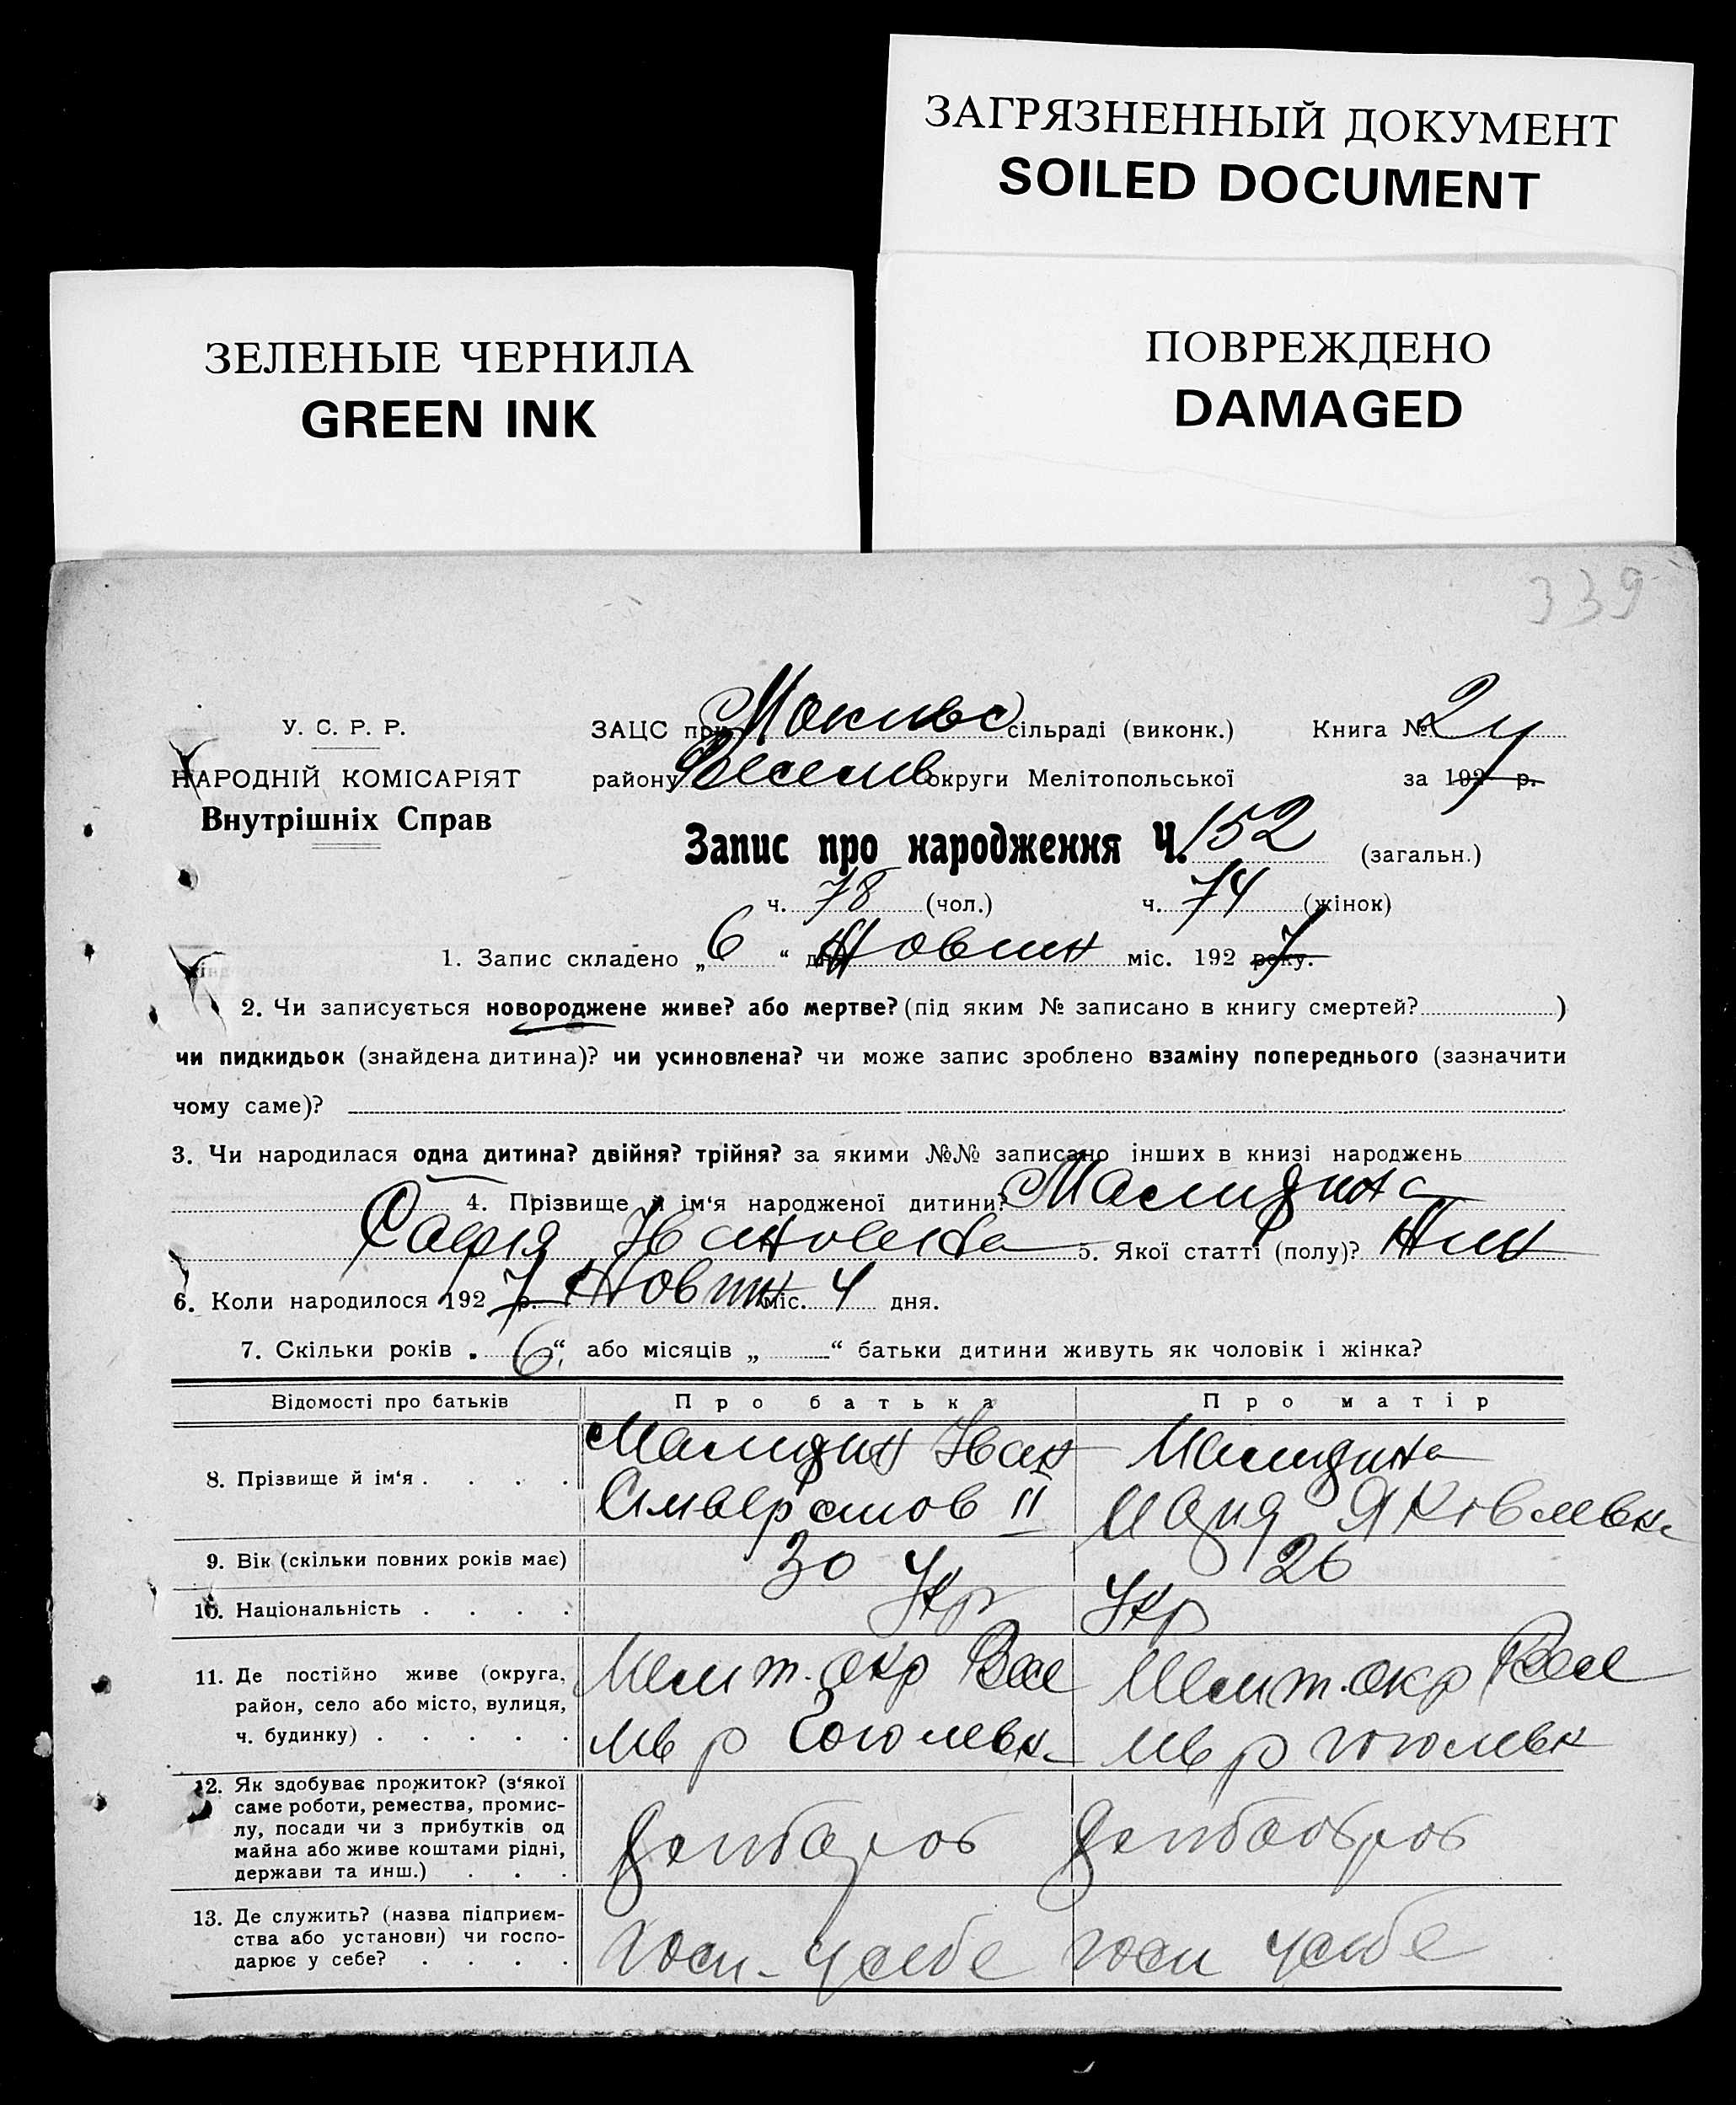 ЗАГРЯЗНЕННЫЙ ДОКУМЕНТ
SOILED DOCUMENT
ЗЕЛЕНЫЕ ЧЕРНИЛА
GREEN INK
ПОВРЕЖДЕНО
DAMAGED
339
У. С. Р. Р.
НАРОДНІЙ КОМІСАРІЯТ
Внутрішніх Справ
ЗАЦС при сільраді (виконк.) Книга №
району округи Мелітопольської за 1927 р.
Запис про народження Ч. 152 (загальн.)
ч. 78 (чол.) ч. 74 (жінок)
1. Запис складено „ 6 “ дня Жовтн міс. 192 7 року.
2. Чи записується новороджене живе? або мертве? (під яким № записано в книгу смертей? )
чи пидкидьок (знайдена дитина)? чи усиновлена? чи може запис зроблено взаміну попереднього (зазначити
чому саме)?
3. Чи народилася одна дитина? двійня? трійня? за якими №№ записано інших в книзі народжень
4. Прізвище й ім‘я народженої дитини?
Івановна 5. Якої статті (полу)? Жін
6. Коли народилося 192 7 р. Жовтн міс. 4 дня.
7. Скільки років „ 6 “ або місяців „ “ батьки дитини живуть як чоловік і жінка?
Відомості про батьків Про батька Про матір
8. Прізвище й ім‘я . . . . Іван
II Яковлевна
9. Вік (скільки повних років має) 30 26
10. Національність . . . . Укр Укр
11. Де постійно живе (округа, Меліт. окр Вес Меліт. окр Весе
район, село або місто, вулиця, р р
ч. будинку) . . . . .
12. Як здобуває прожиток? (з‘якої
саме роботи, ремества, промис-
лу, посади чи з прибутків од хлібороб хлібороб
майна або живе коштами рідні,
держави та инш.) . . .
13. Де служить? (назва підприєм-
ства або установи) чи госпо- госп. у себе госп у себе
дарює у себе? . . . .